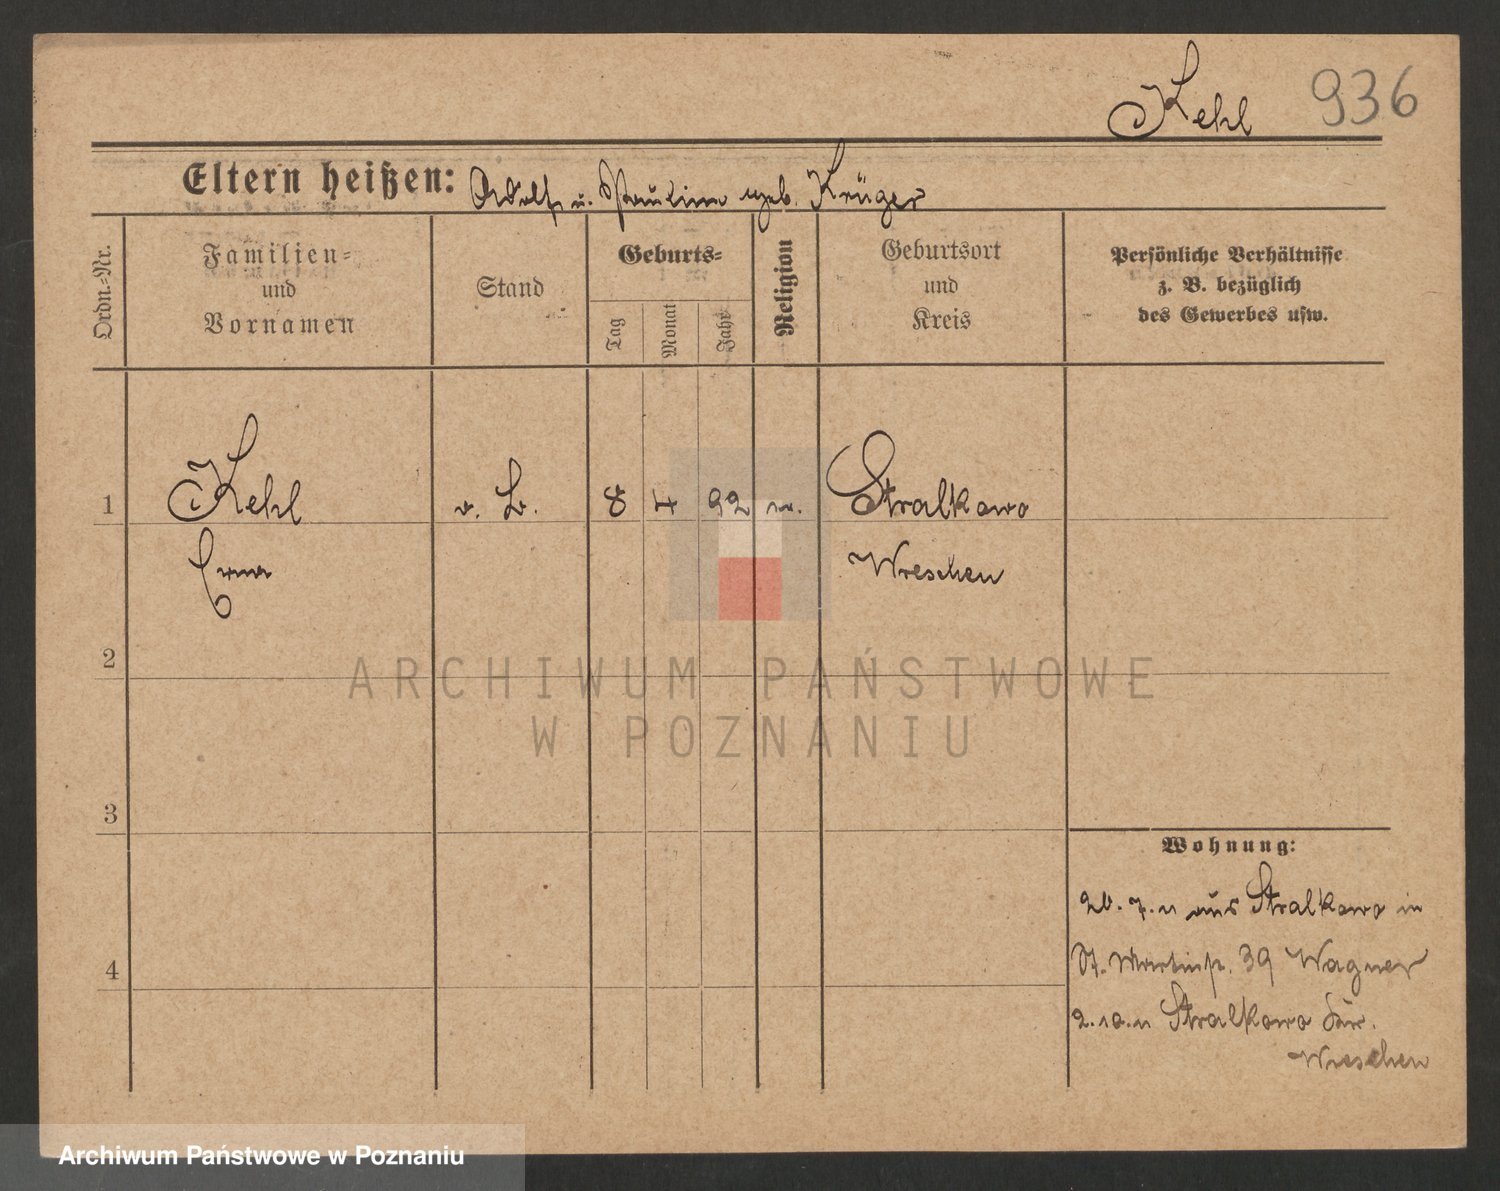 Kehl 936
Eltern heißen: Adolf u. Pauline geb. Krüger
Ordn.-Nr.
Familien-
und
Vornamen
Stand
Geburts-
Tag
Monat
Jahr
Religion
Geburtsort
und
Kreis
Persönliche Verhältnisse
z. B. bezüglich
des Gewerbes usw.
1 Kehl o. B. 8 4 92 Stralkowo
Erna Wreschen
2
3
4
ARCHIWUM PAŃSTWOWE
W POZNANIU
Wohnung:
26. 7. 11 aus Stralkowo in
St. Martinstr. 39 Wagner
2. 10. 11 Stralkowo
Wreschen
Archiwum Państwowe w Poznaniu